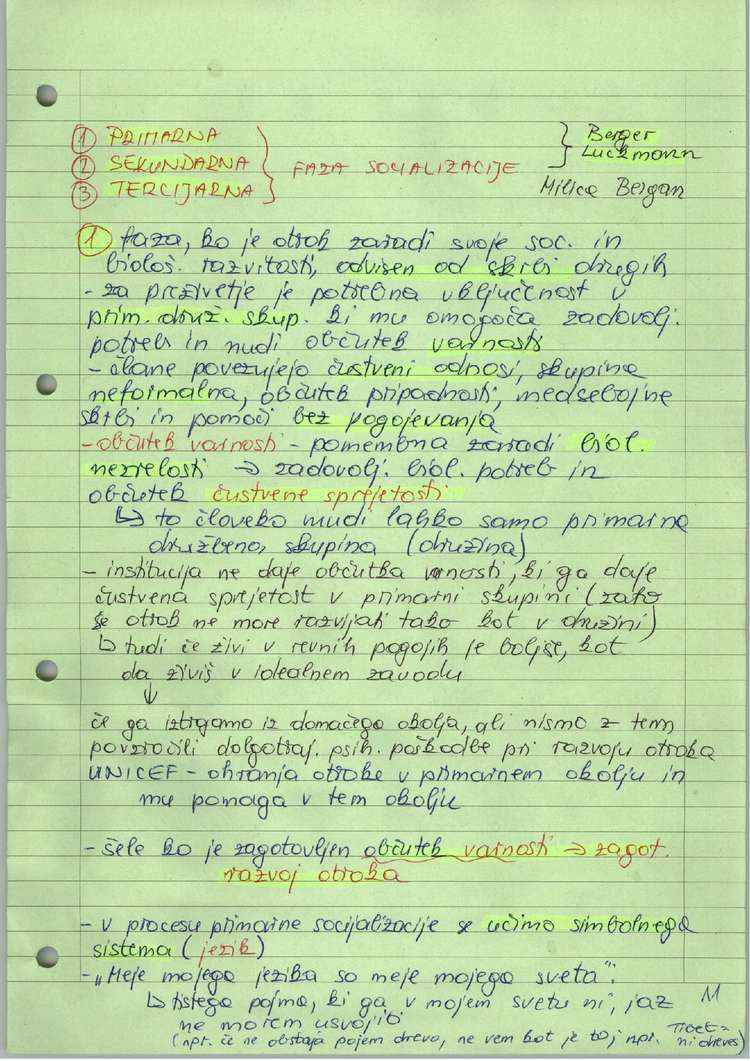 ① PRIMARNA
② SEKUNDARNA
③ TERCIJARNA
} FAZA SOCIALIZACIJE
} Berger
Luckmann
Milica Bergan
① faza, ko je otrok zaradi svoje soc. in
biološ. razvitosti, odvisen od skrbi drugih
- za preživetje je potrebna vključenost v
prim. druž. skup. ki mu omogoča zadovolj.
potreb in nudi občutek varnosti
- člane povezujejo čustveni odnosi, skupina
neformalna, občutek pripadnosti, medsebojne
skrbi in pomoči bez pogojevanja
- občutek varnosti - pomembna zaradi biol.
nezrelosti → zadovolj. biol. potreb in
občutek čustvene sprejetosti
↳ to človeko nudi lahko samo primarna
družbena skupina (družina)
- institucija ne daje občutka varnosti, ki ga daje
čustvena sprejetost v primarni skupini (zato
se otrok ne more razvijati tako kot v družini)
↳ tudi če živi v revnih pogojih je boljše, kot
da živiš v idealnem zavodu
↓
če ga iztrgamo iz domačega okolja, ali nismo z tem
povzročili dolgotraj. psih. poškodbe pri razvoju otroka
UNICEF - ohranja otroke v primarnem okolju in
mu pomaga v tem okolju
- šele ko je zagotovljen občutek varnosti → zagot.
razvoj otroka
- v procesu primarne socijalizacije se učimo simbolnega
sistema (jezik)
- „Meje mojega jezika so meje mojega sveta".
↳ tistega pojma, ki ga v mojem svetu ni, jaz
ne morem usvojiti
(npr. če ne obstaja pojem drevo, ne vem kot je to; npr. Tibet =
ni dreves)
M